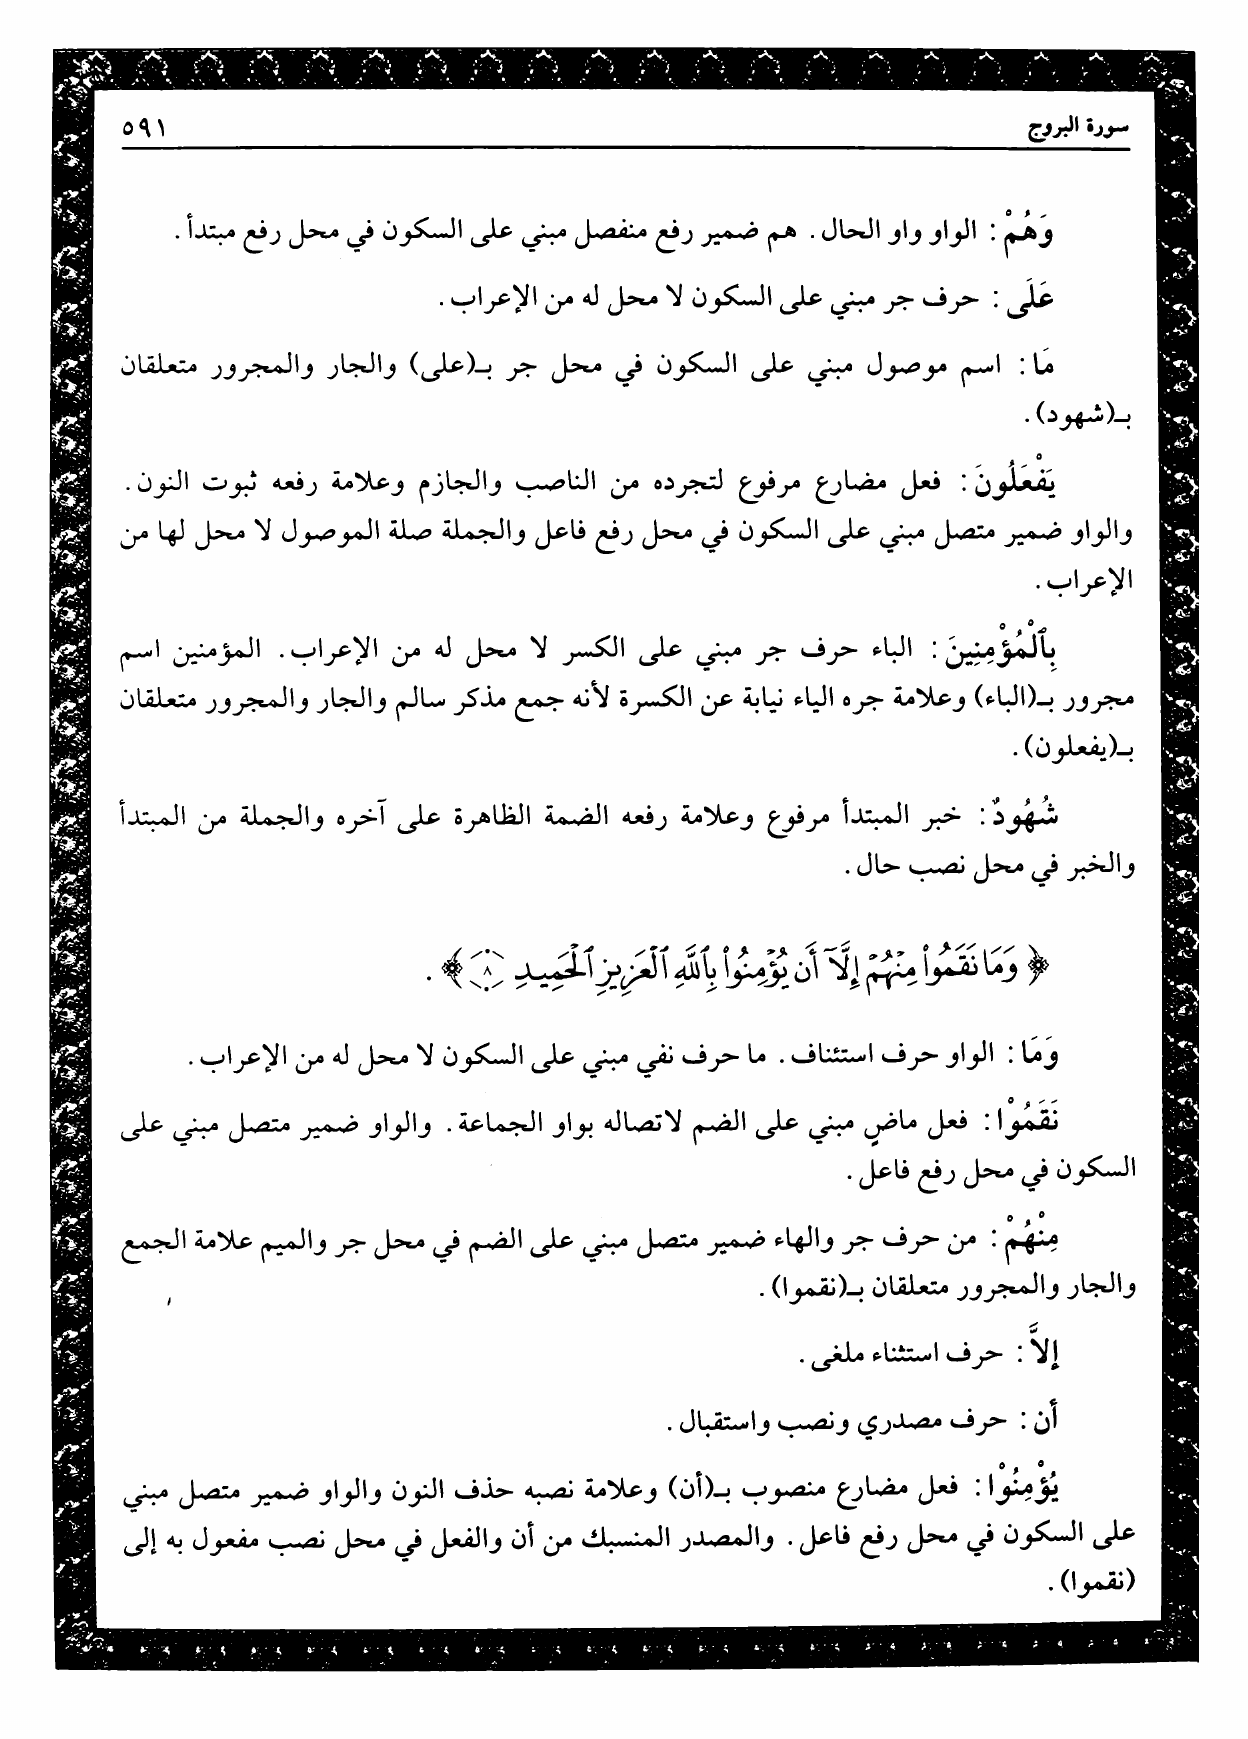 سورة البروج
٥٩١
وَهُمْ: الواو واو الحال. هم ضمير رفع منفصل مبني على السكون في محل رفع مبتدأ.
عَلَى: حرف جر مبني على السكون لا محل له من الإعراب.
مَا: اسم موصول مبني على السكون في محل جر بـ(على) والجار والمجرور متعلقان
بـ(شهود).
يَفْعَلُونَ: فعل مضارع مرفوع لتجرده من الناصب والجازم وعلامة رفعه ثبوت النون.
والواو ضمير متصل مبني على السكون في محل رفع فاعل والجملة صلة الموصول لا محل لها من
الإعراب.
بِٱلْمُؤْمِنِينَ: الباء حرف جر مبني على الكسر لا محل له من الإعراب. المؤمنين اسم
مجرور بـ(الباء) وعلامة جره الياء نيابة عن الكسرة لأنه جمع مذكر سالم والجار والمجرور متعلقان
بـ(يفعلون).
شُهُودٌ: خبر المبتدأ مرفوع وعلامة رفعه الضمة الظاهرة على آخره والجملة من المبتدأ
والخبر في محل نصب حال.
﴿ وَمَا نَقَمُوا۟ مِنْهُمْ إِلَّآ أَن يُؤْمِنُوا۟ بِٱللَّهِ ٱلْعَزِيزِ ٱلْحَمِيدِ ٨ ﴾.
وَمَا: الواو حرف استئناف. ما حرف نفي مبني على السكون لا محل له من الإعراب.
نَقَمُوْا: فعل ماضٍ مبني على الضم لاتصاله بواو الجماعة. والواو ضمير متصل مبني على
السكون في محل رفع فاعل.
مِنْهُمْ: من حرف جر والهاء ضمير متصل مبني على الضم في محل جر والميم علامة الجمع
والجار والمجرور متعلقان بـ(نقموا).
إلاَّ: حرف استثناء ملغى.
أن: حرف مصدري ونصب واستقبال.
يُؤْمِنُوْا: فعل مضارع منصوب بـ(أن) وعلامة نصبه حذف النون والواو ضمير متصل مبني
على السكون في محل رفع فاعل. والمصدر المنسبك من أن والفعل في محل نصب مفعول به إلى
(نقموا).